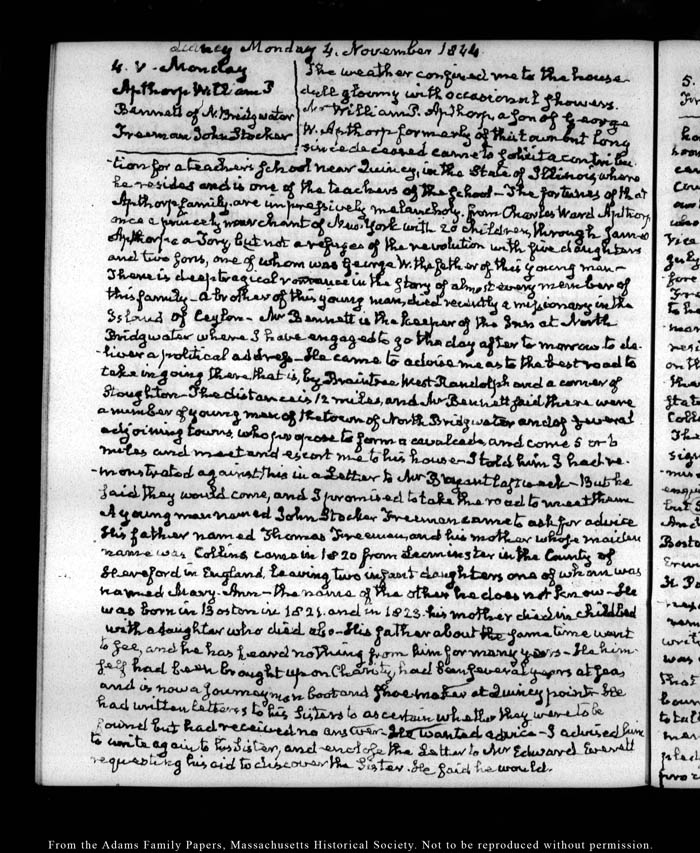 Quincy Monday 4. November 1844.
4. V. Monday
Apthorp William P
Bennett of N. Bridgwater
Freeman John Stocker
The weather confined me to the house
dull gloomy with occasional showers.
Mr William P. Apthorp, a son of George
W. Apthorp formerly of this town but long
since deceased came to solicit a contribu
-tion for a teachers school near Quincy, in the State of Illinois where
he resides and is one of the teachers of the school — The fortunes of that
Apthorp family, are impressively melancholy. from Charles Ward Apthorp
once a princely merchant of New York with 20 children, through James
Apthorp a Tory but not a refugee of the revolution with five daughters
and two sons, one of whom was George W. the father of this young man —
There is deep tragical romance in the story of almost every member of
this family — a brother of this young man, died recently a missionary in the
Island of Ceylon — Mr Bennett is the keeper of the Inn at North
Bridgwater where I have engaged to go the day after to morrow to de-
-liver a political address — He came to advise me as to the best road to
take in going there that is, by Braintree West Randolph and a corner of
Stoughton — The distance is 12 miles, and Mr Bennett said there were
a number of young men of the town of North Bridgwater and of several
adjoining towns, who propose to form a cavalcade, and come 5 or 6
miles and meet and escort me to his house — I told him I had re-
-monstrated against this in a Letter to Mr Bryant last week — But he
said they would come, and I promised to take the road to meet them
A young man named John Stocker Freeman came to ask for advice
His father named Thomas Freeman, and his mother whose maiden
name was Collins, came in 1820 from Leominster in the County of
Hereford in England, leaving two infant daughters one of whom was
named Mary-Ann — the name of the other he does not know — He
was born in Boston in 1821. and in 1823. his mother died in childbed
with a daughter who died also — His father about the same time went
to sea, and he has heard nothing from him for many years — He him-
self had been brought up on Charity, had been several years at sea
and is now a journeyman boot and shoe maker at Quincy point — He
had written letters to his Sisters to ascertain whether they were to be
found but had received no answer. He wanted advice — I advised him
to write again to his Sister, and enclose the Letter to Mr Edward Everett
requesting his aid to discover the Sister. He said he would.
From the Adams Family Papers, Massachusetts Historical Society. Not to be reproduced without permission.